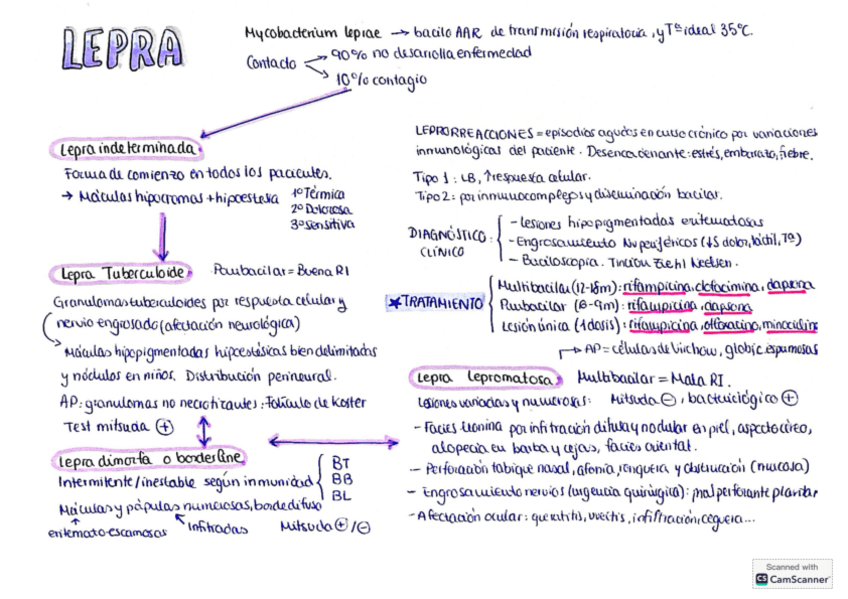 LEPRA
Mycobacterium leprae → bacilo AAR de transmisión respiratoria, y Tª ideal 35ºC.
Contacto
90% no desarrolla enfermedad
10% contagio
Lepra indeterminada
Forma de comienzo en todos los pacientes.
→ Máculas hipocromas + hipoestesia
1º Térmica
2º Dolorosa
3º Sensitiva
Lepra Tuberculoide
Paubacilar = Buena RI
Granulomas tuberculoides por respuesta celular y
nervio engrosado (afectación neurológica)
Máculas hipopigmentadas hipoestésicas bien delimitadas
y nódulos en niños. Distribución perineural.
AP: granulomas no necrotizantes: Folículo de Koster
Test mitsuda (+)
Lepra dimorfa o borderline
Intermitente/inestable según inmunidad
BT
BB
BL
Máculas y pápulas numerosas, borde difuso
eritemato-escamosas
Infiltradas
Mitsuda (+)/(-)
LEPRORREACCIONES = episodios agudos en curso crónico por variaciones
inmunológicas del paciente. Desencadenante: estrés, embarazo, fiebre.
Tipo 1: LB, ↑respuesta celular.
Tipo 2: por inmunocomplejos y diseminación bacilar.
DIAGNÓSTICO CLÍNICO:
- Lesiones hipopigmentadas eritematosas
- Engrosamiento Nv periféricos (↓S dolor, táctil, Tª)
- Baciloscopia. Tinción Ziehl Neelsen.
★TRATAMIENTO
Multibacilar (12-18m): rifampicina, clofacimina, dapsona
Paubacilar (6-9m): rifampicina, dapsona
Lesión única (1 dosis): rifampicina, ofloxacino, minociclina
→ AP = células de Virchow, globic espumosas
Lepra Lepromatosa
Multibacilar = Mala RI.
Lesiones variadas y numerosas: Mitsuda (-), bacteriológico (+)
- Facies leonina por infiltración difusa y nodular en piel, aspecto céreo,
alopecia en barba y cejas, facies oriental.
- Perforación tabique nasal, afonía, ronquera y obstrucción (mucosa)
- Engrosamiento nervios (urgencia quirúrgica): mal perforante plantar
- Afectación ocular: queratitis, uveítis, infiltración, ceguera...
Scanned with
CS CamScanner